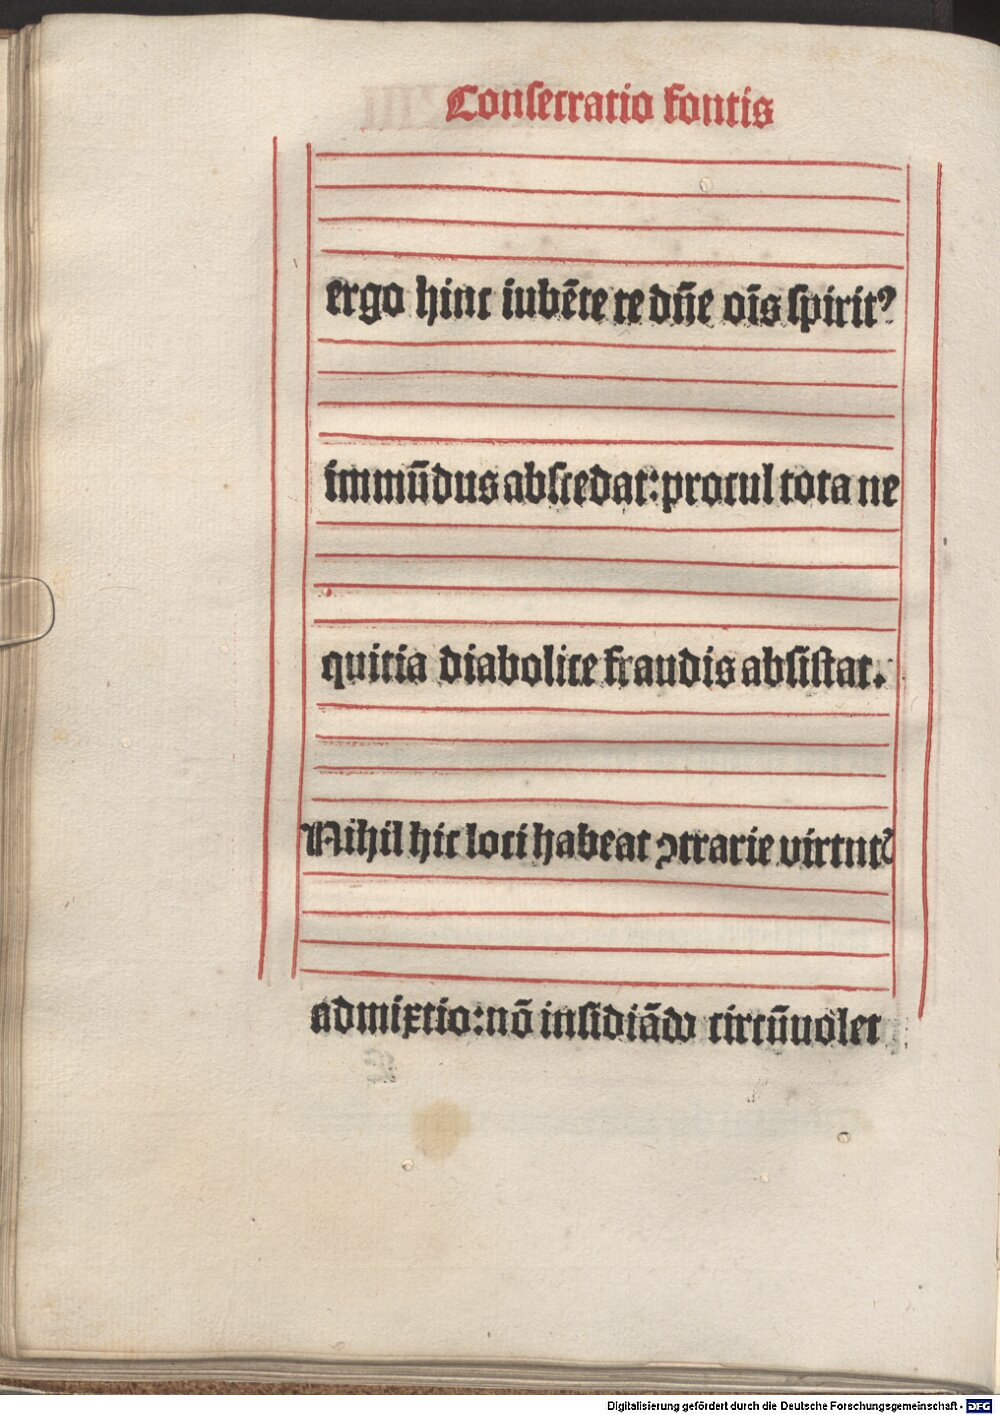 Consecratio fontis
ergo hinc iubēte te dn̄e oīs spiritꝰ
immūdus abscedat: procul tota ne
quitia diabolice fraudis absistat.
Nihil hic loci habeat ꝯtrarie virtutꝭ
admixtio: nō insidiādo circūuolet
Digitalisierung gefördert durch die Deutsche Forschungsgemeinschaft - DFG